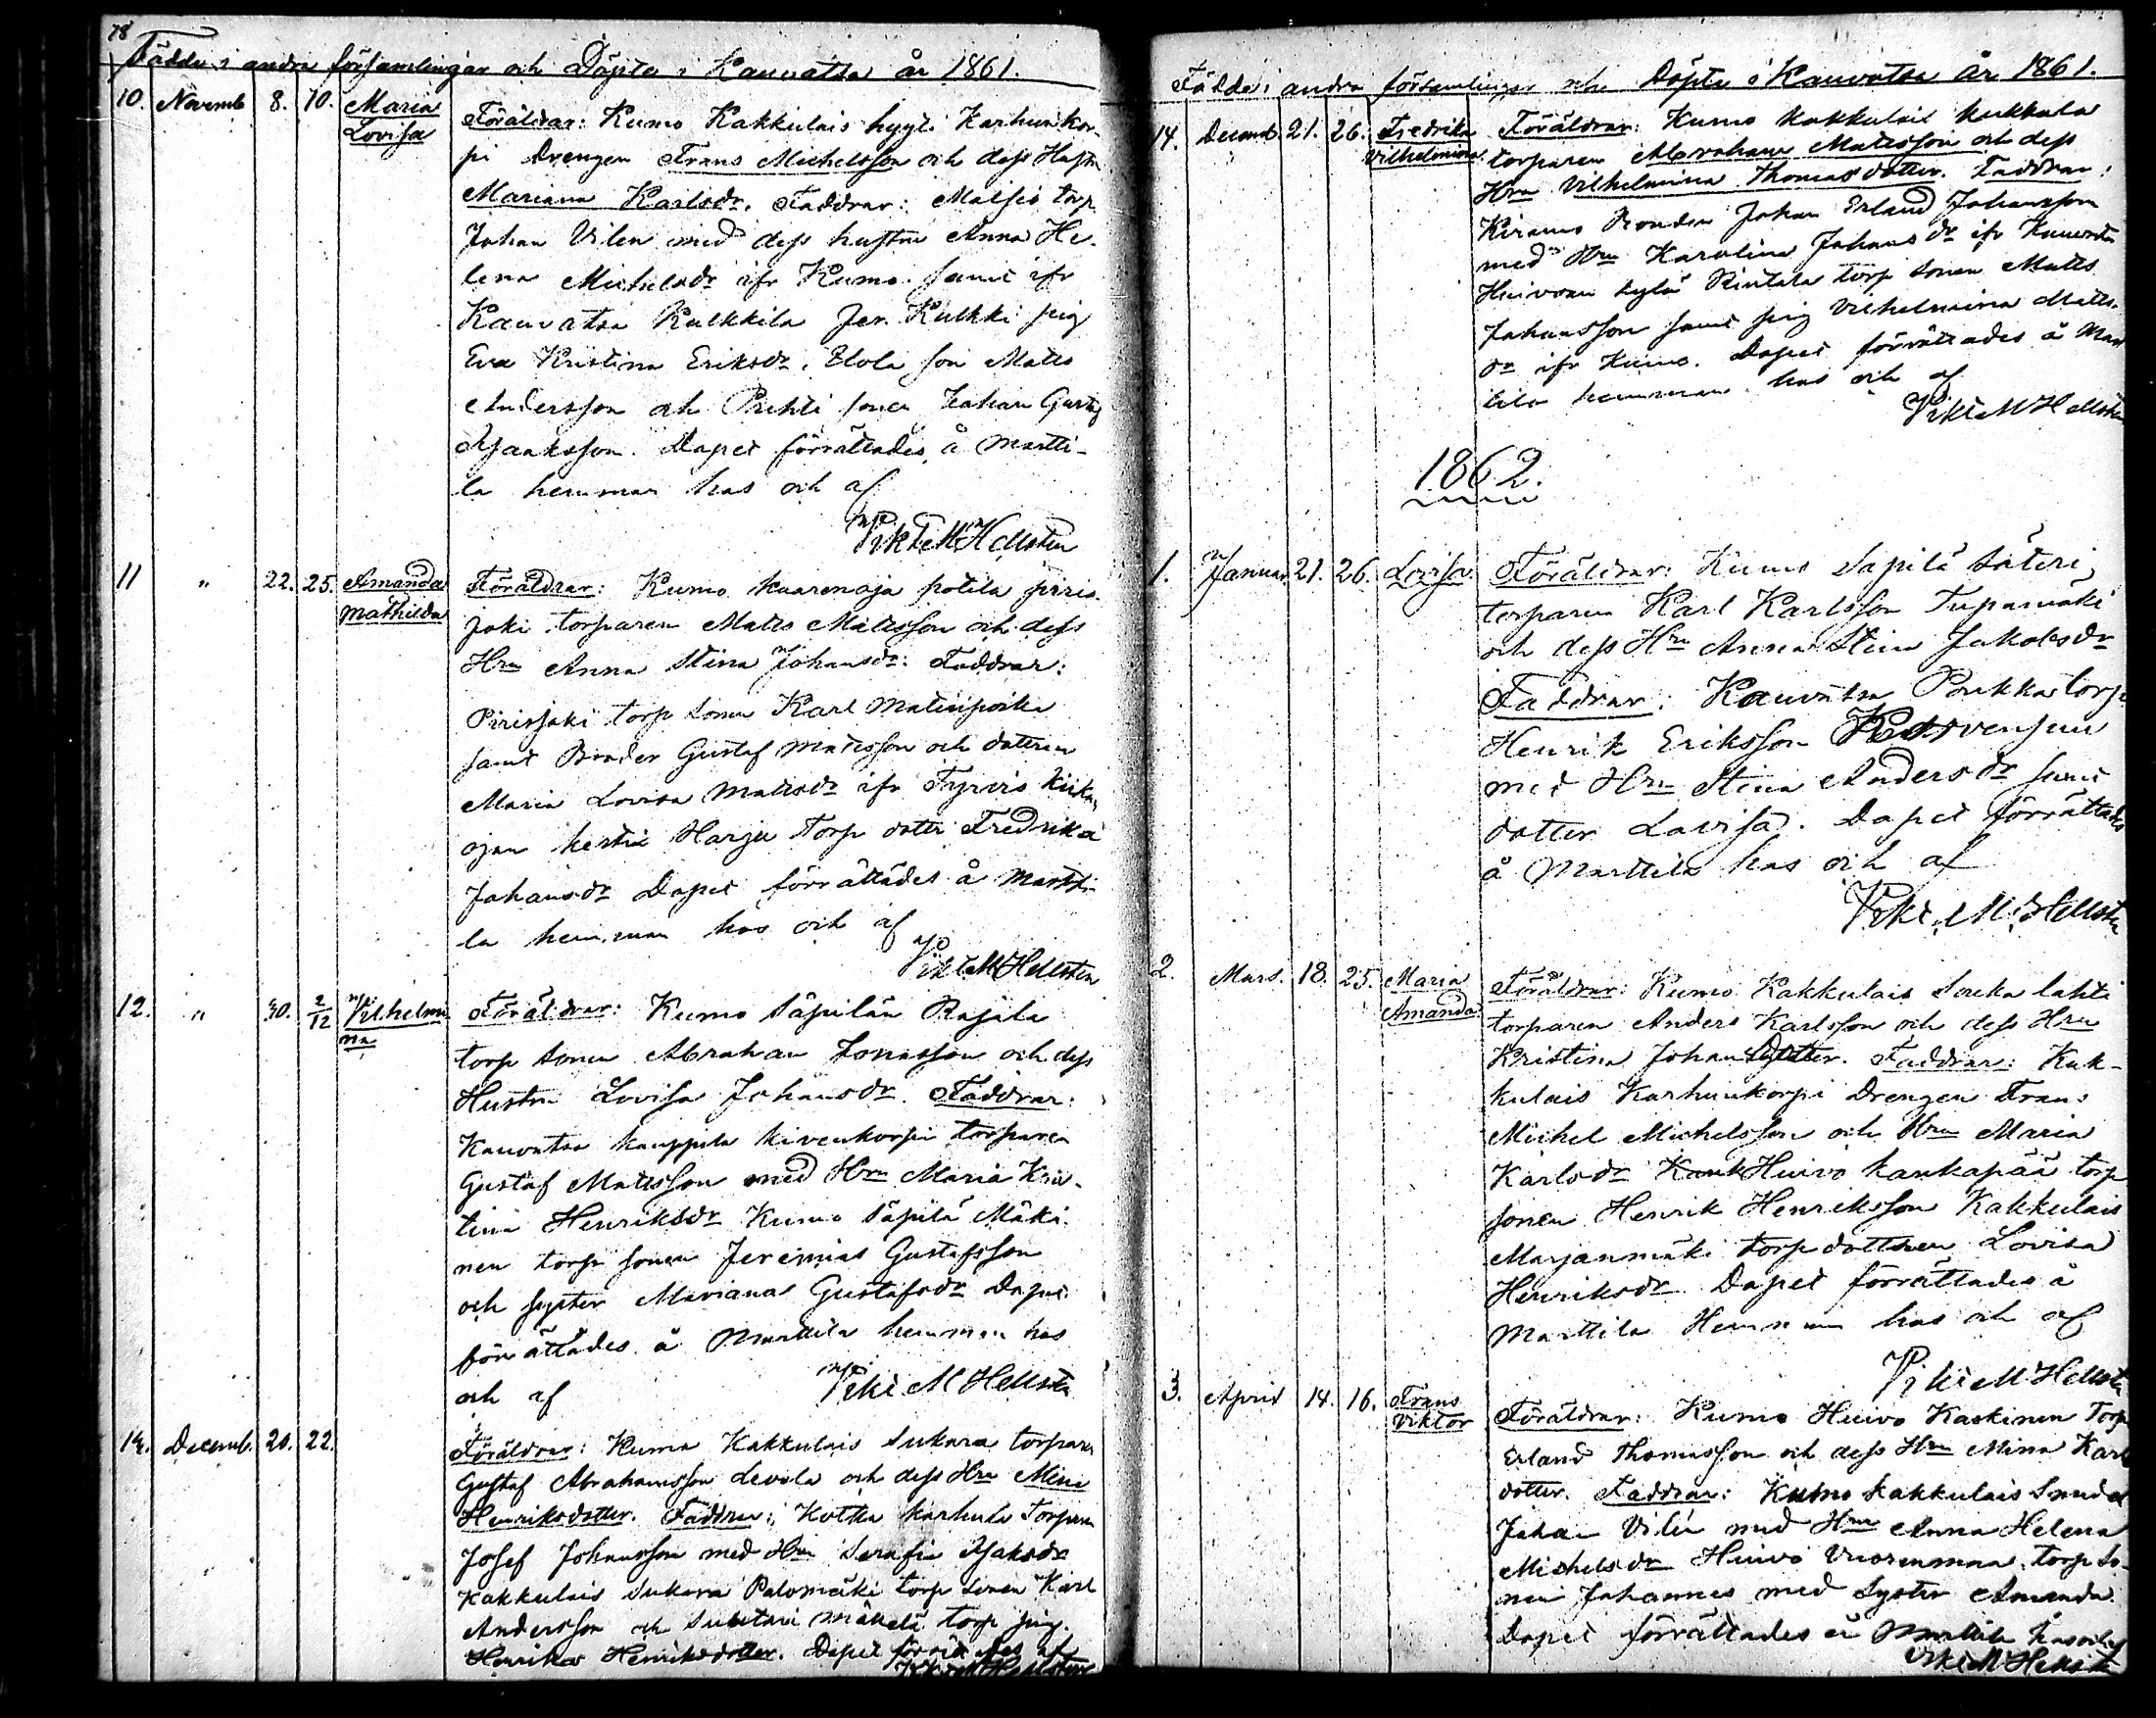 78
Födde i andra församlingar och Döpte i Kauvatsa år 1861.
10. Novemb 8. 10. Maria Lovisa
Föräldrar: Kumo Kakkulais hygl. Karhunkor-
pi Drengen Frans Michelsson och dess Hustru
Mariana Karlsdr. Faddrar: torp
Johan Vilen med dess hustru Anna He-
lena Michelsdr ifr Kumo. samt ifr
Kauvatsa Kulkkila Jer. Kulkki pig
Eva Kristina Eriksdr. son Matts
Andersson och sonen Johan Gustaf
Isaksson. Dopet förrättades å Martti-
la hemman hos och af
Vikt M Hellsten
11 " 22. 25. Amanda Mathilda
Föräldrar: Kumo Kuarenoja potila piris
joki torparen Matts Mattsson och dess
Hru Anna Stina Johansdr: Faddrar:
Pirisjoki torp sonen Karl Matinpoika
samt Broder Gustaf Mattsson och dottren
Maria Lovisa Mattsdr ifr Tyrvis Kiika
ojan Harju torp dottr Fredrika
Johansdr Dopet förrättades å Martti-
la hemman hos och af
Vikt M Hellsten
12. " 30. 2/12 Vilhelmi na
Föräldrar: Kumo Säpilän Rajala
torp sonen Abraham Jonasson och dess
Hustru Lovisa Johansdr. Faddrar:
Kauvatsa Kauppila Kivenkorpi torparen
Gustaf Mattsson med Hru Maria Kris-
tina Henriksdr Kumo Säpilä Mäki-
nen torp sonen Jeremias Gustafsson
och syster Mariana Gustafsdr Dopet
förrättades å Marttila hemman hos
och af Vikt M Hellsten
14. Decemb. 20. 22.
Föräldrar: Kumo Kakkulais Sukara torparen
Gustaf Abrahamsson Levola och dess Hru Mina
Henriksdotter. Faddrar: Karhula Torparen
Josef Johansson med Hru Serafia Isaksdr
Kakkulais Sukara Palomäki torp sonen Karl
Andersson och mäkelä torp pig.
Henrika Henriksdotter. Dopet förrättades af
Vikt M Hellsten
Födde i andra församlingar och Döpte i Kauvatsa år 1861.
14. Decemb. 21. 26. Fredrika Vilhelmina
Föräldrar: Kumo Kakkulais Kukkola
torparen Abraham Mattsson och dess
Hru Vilhelmina Thomasdotter. Faddrar:
Kiramo Bonden Johan Erland Johansson
med Hru Karolina Johansdr ifr Kauvatsa
Huivoan kylä Rintala torp sonen Matts
Johansson samt pig Vilhelmina Matts-
dr ifr Kumo. Dopet förrättades å Mart
tila hemman hos och af
Vikt M Hellsten
1862.
1. Januar. 21. 26. Lovisa
Föräldrar: Kumo Säpilä Säteri
torparen Karl Karlsson Tupamäki
och dess Hru Anna Stina Jakobsdr
Faddrar: Kauvatsa Poukka torp
Henrik Eriksson
med Hru Stina Andersdr samt
dotter Lovisa. Dopet förrättades
å Marttila hos och af
Vikt. M. Hellsten
2. Mars. 18. 25. Maria Amanda
Föräldrar: Kumo Kakkulais lahti
torparen Anders Karlsson och dess Hru
Kristina Johansdotter. Faddrar: Kak-
kulais Karhunkorpi Drengen Frans
Michel Michelsson och Hru Maria
Karlsdr Huivo Kankapää torp
sonen Henrik Henriksson Kakkulais
Marjanmäki torp dottren Lovisa
Henriksdr Dopet förrättades å
Marttila Hemman hos och af
Vikt M Hellsten
3. April 14. 16. Frans Viktor
Föräldrar: Kumo Huivo Kaskinen Torp
Erland Thomasson och dess Hru Mina Karl
dotter. Faddrar: Kumo Kakkulais
Johan Vilén med Hru Anna Helena
Michelsdr Huivo Vuorenmaa torp so-
nen Johannes med Syster Amanda.
Dopet förrättades å Marttila hos och af
Vikt M Hellsten